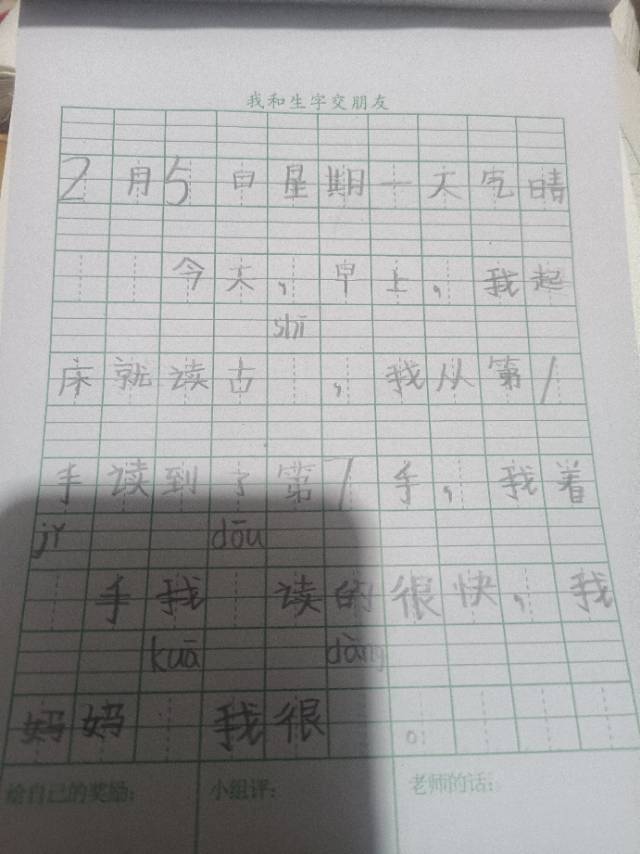 我和生字交朋友
2月5日星期一天气晴
今天，早上，我起
shī
床就读古，我从第1
手读到了第7手，我着
jǐ dōu
手我读的很快，我
kuā dàng
妈妈我很。
给自己的奖励：小组评：老师的话：